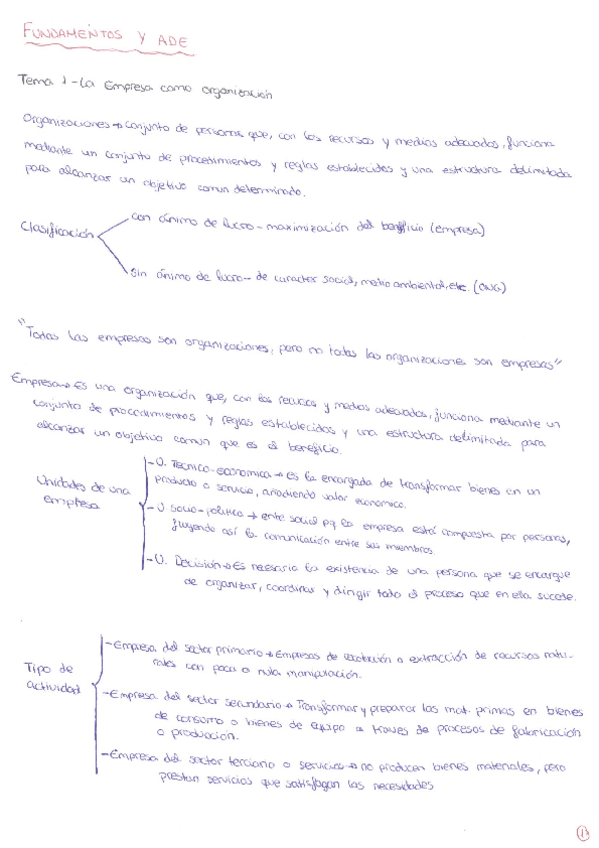 FUNDAMENTOS Y ADE
Tema 1 - La Empresa como organización
Organizaciones → conjunto de personas que, con los recursos y medios adecuados, funciona
mediante un conjunto de procedimientos y reglas establecidos y una estructura delimitada
para alcanzar un objetivo comun determinado.
Clasificación
con ánimo de lucro - maximización del beneficio (empresa)
Sin ánimo de lucro - de caracter social, medio ambiental, etc. (ONG)
"Todas las empresas son organizaciones, pero no todas las organizaciones son empresas"
Empresa → Es una organización que, con los recursos y medios adecuados, funciona mediante un
conjunto de procedimientos y reglas establecidos y una estructura delimitada para
alcanzar un objetivo comun que es el beneficio.
Unidades de una
empresa
- U. Tecnico-economica → es la encargada de transformar bienes en un
producto o servicio, añadiendo valor economico.
- U socio-politico → ente social pq la empresa está compuesta por personas,
fluyendo así la comunicación entre sus miembros.
- U. Decisión → Es necesario la existencia de una persona que se encargue
de organizar, coordinar y dirigir todo el proceso que en ella sucede.
Tipo de
actividad
- Empresa del sector primario → Empresas de recolección o extracción de recursos natu-
rales con poca o nula manipulación.
- Empresa del sector secundario → Transformar y preparar las mat. primas en bienes
de consumo o bienes de equipo a traves de procesos de fabricación
o producción.
- Empresa del sector terciario o servicios → no producen bienes materiales, pero
prestan servicios que satisfagan las necesidades